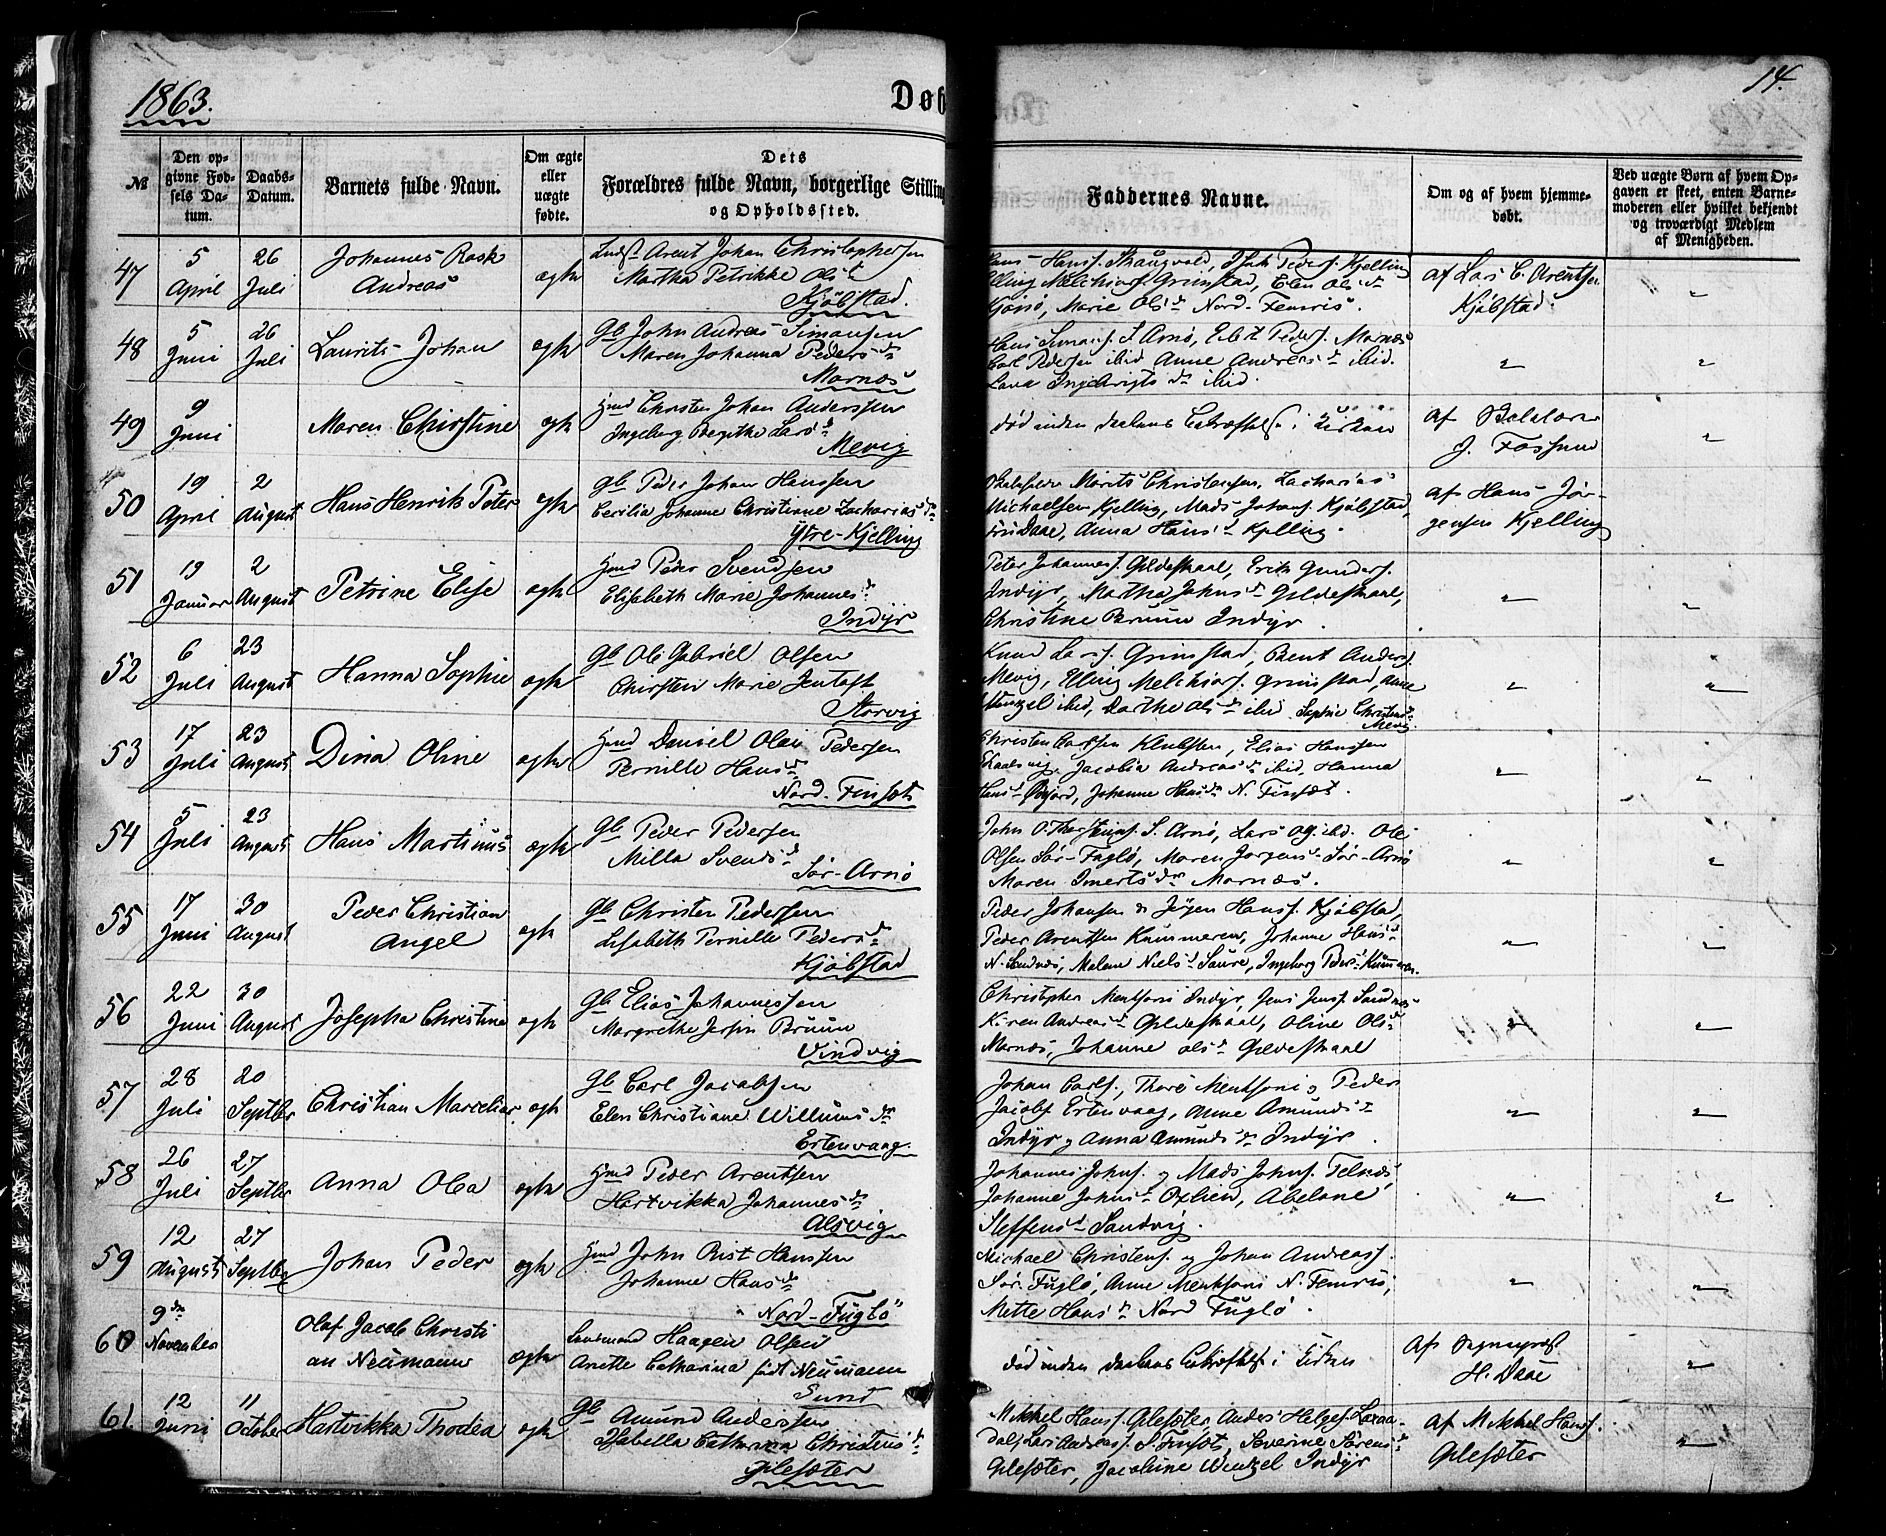 1863.
Døb
14.
№
Den opgivne Fødsels Datum.
Daabs-Datum.
Barnets fulde Navn.
Om ægte eller uægte fødte.
Dets Forældres fulde Navn, borgerlige Stilling og Opholdssted.
Faddernes Navne.
Om og af hvem hjemmedøbt.
Ved uægte Børn af hvem Opgaven er skeet, enten Barnemoderen eller hvilket bekjendt og troværdigt Medlem af Menigheden.
47
5 April
26 Juli
Johannes Rask Andreas
ægte
Arent Johan Christophersen
Martha Petrikke Ols d
Kjøbstad.
Hans Hansf. Skaugvold, Peders. Kjelling
Elling Melchiors. Grimstad, Elen Ols dr
Marie Ols dr Nord-Femris.
af Lars C. Arentsen
Kjøbstad
48
5 Juni
26 Juli
Laurits Johan
ægte
Gb John Andreas Simonsen
Maren Johanna Peders dr
Mornæs
Hans Simons. S. Arnø, Peders. Mornæs
Carl Pedersen ibid Anne Andreas dr ibid.
Ingebrigts dr ibid.
49
9 Juni
Maren Christine
ægte
Hmd Christen Johan Anderssen
Ingeborg Birgitha Lars d
Mevig
død inden Daabens Bekræftelse i Kirken
af
J. Fossum
50
19 April
2 August
Hans Henrik Peter
ægte
gb Peder Johan Hanssen
Cecilia Johanne Christiane Zacharias dr
Ytre-Kjelling
Morits Christensen, Zacharias
Michaelsen Kjelling, Mads Johans. Kjøbstad,
Fru Daae, Anna Hans d Kjelling.
af Hans Jør-
gensen Kjelling
51
19 Januar
2 August
Petrine Elise
ægte
Hmd Peder Svendsen
Elisabeth Marie Johannes d
Indyr
Peter Johannes. Gildeskaal, Erik Gunders.
Indyr, Martha Johns dr Gildeskaal,
Christine Bruun Indyr.
52
6 Juli
23 August
Hanna Sophie
ægte
Gb Ole Gabriel Olsen
Chirsten Marie Jentoft
Storvig
Knud Lars. Grimstad, Bent Anders.
Mevig, Elling Melchiors. Grimstad, Anne
Wenzel ibid, Dorthe Ols dr ibid Sophie Christens d
Mevig
53
17 Juli
23 August
Dina Oline
ægte
Hmd Daniel Olai Pedersen
Pernille Hans dr
Nord-Finsæt
Christen Carlsen, Elias Hanssen
Jacobia Andreas dr ibid, Hanna
Hans d, Johanne Hans dr N. Finsæt.
54
5 Juli
23 August
Hans Martinus
ægte
Gb Peder Pedersen
Milla Svends d
Sør-Arnø
John O. S. Arnø, Lars Og. ibd. Ole
Olsen Sør-Fuglø, Maren Jørgens d Sør-Arnø
Maren Imerts dr Mornæs.
55
17 Juni
30 August
Peder Christian Angel
ægte
Gb Christen Pedersen
Lisabeth Pernille Peders d
Kjøbstad
Peder Johansen & Jørgen Hans. Kjøbstad,
Peder Arentsen Kunmaren, Johanne Hans d
N. Sandnæs, Malene Niels d Saure, Ingeborg Peders d Kunmaren.
56
22 Juni
30 August
Josepha Christine
ægte
Gb Elias Johannessen
Margrethe Bruun
Vindvig
Christopher Mentsoni Indyr, Jens Jens. Sandnæs
Karen Andreas d Gildeskaal, Oline Ols d
Mornæs, Johanne Ols d Gildeskaal
57
28 Juli
20 Septbr
Christian Marcelias
ægte
Gb Carl Jacobsen
Elen Christiane Willums dr
Ertenvaag.
Johan Carls., Thore Mentsoni og Peder
Jacobs. Ertenvaag, Anne Amunds d
Indyr og Anna Amunds dr Indyr.
58
26 Juli
27 Septbr
Anna Olea
ægte
Hmd Peder Arentsen
Hartvikka Johannes dr
Alsvig
Johannes Johns. og Mads Johns. Telnæs,
Johanne Johns d Oxlien, Abelone
Steffens d Sandvig.
59
12 August
27 Septbr
Johan Peder
ægte
Hmd John Rist Hanssen
Johanne Hans dr
Nord-Fuglø
Michael Christens. og Johan Andreas.
Sør-Fuglø, Anne Mentsoni N. Femris,
Mette Hans dr Nord Fuglø.
60
9de November
Olaf Jacob Christi
an Neumann
ægte
Landmand Haagen Olsen
Anette Catharina født Neumann
Sund
død inden Daabens Bekræftelse i Kirken
af Sognepræst
H. Daae
61
12 Juni
11 October
Hartvikka Thodea
ægte
Gb Amund Anderssen
Isabella Cathrina Christens d
Gilesæter
Mikkel Hans. Gilesæter, Anders Helges.
Lars Andreas. S. Finsæt, Severine Sørens d
Gilesæter, Jacobine Wenzel Indyr
af Mikkel Hans.
Gilesæter